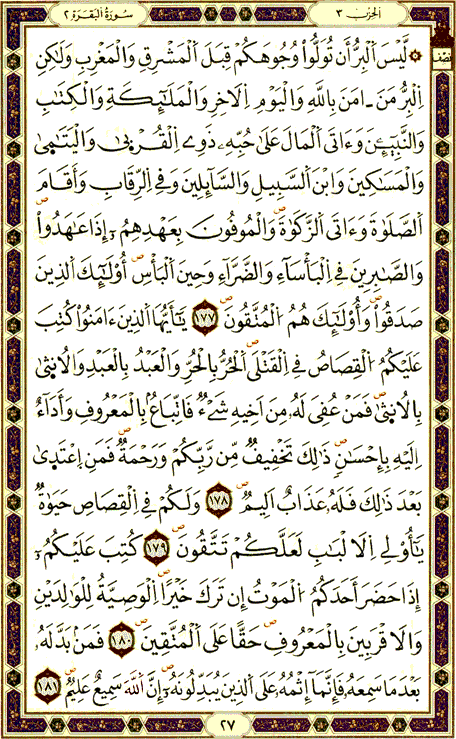 الحزب ٣
سورة البقرة ٢
نصف
لَّيْسَ اَلْبِرُّ أَن تُوَلُّواْ وُجُوهَكُمْ قِبَلَ اَلْمَشْرِقِ وَالْمَغْرِبِ وَلَٰكِنِ
اِلْبِرُّ مَنَ ـ امَنَ بِاللَّهِ وَالْيَوْمِ اِلَاخِرِ وَالْمَلَٰٓئِكَةِ وَالْكِتَٰبِ
وَالنَّبِيٓـِٕنَ وَءَاتَى اَلْمَالَ عَلَىٰ حُبِّهِۦ ذَوِے اِلْقُرْبَىٰ وَالْيَتَٰمَىٰ
وَالْمَسَٰكِينَ وَابْنَ اَلسَّبِيلِ وَالسَّآئِلِينَ وَفِے اِلرِّقَابِ وَأَقَامَ
اَلصَّلَوٰةَ وَءَاتَى اَلزَّكَوٰةَۖ وَالْمُوفُونَ بِعَهْدِهِمُۥٓ إِذَا عَٰهَدُواْۖ
وَالصَّٰبِرِينَ فِے اِلْبَأْسَآءِ وَالضَّرَّآءِ وَحِينَ اَلْبَأْسِۖ أُوْلَٰٓئِكَ اَلذِينَ
صَدَقُواْۖ وَأُوْلَٰٓئِكَ هُمُ اُلْمُتَّقُونَۖ ١٧٧ يَٰٓأَيُّهَا اَلذِينَ ءَامَنُواْ كُتِبَ
عَلَيْكُمُ اُلْقِصَاصُ فِے اِلْقَتْلَىۖ اَلْحُرُّ بِالْحُرِّ وَالْعَبْدُ بِالْعَبْدِ وَالُانثَىٰ
بِالُانثَىٰۖ فَمَنْ عُفِيَ لَهُۥ مِنَ اَخِيهِ شَےْءٞ فَاتِّبَاعُۢ بِالْمَعْرُوفِ وَأَدَآءٌ
اِلَيْهِ بِإِحْسَٰنٖۖ ذَٰلِكَ تَخْفِيفٞ مِّن رَّبِّكُمْ وَرَحْمَةٞۖ فَمَنِ اِعْتَدَىٰ
بَعْدَ ذَٰلِكَ فَلَهُۥ عَذَابٌ اَلِيمٞۖ ١٧٨ وَلَكُمْ فِے اِلْقِصَاصِ حَيَوٰةٞ
يَٰٓأُوْلِے اِلَالْبَٰبِ لَعَلَّكُمْ تَتَّقُونَۖ ١٧٩ كُتِبَ عَلَيْكُمُۥٓ
إِذَا حَضَرَ أَحَدَكُمُ اُلْمَوْتُ إِن تَرَكَ خَيْراً اِلْوَصِيَّةُ لِلْوَٰلِدَيْنِ
وَالَاقْرَبِينَ بِالْمَعْرُوفِۖ حَقّاً عَلَى اَلْمُتَّقِينَۖ ١٨٠ فَمَنۢ بَدَّلَهُۥ
بَعْدَمَا سَمِعَهُۥ فَإِنَّمَآ إِثْمُهُۥ عَلَى اَلذِينَ يُبَدِّلُونَهُۥٓۖ إِنَّ اَللَّهَ سَمِيعٌ عَلِيمٞۖ ١٨١
٢٧